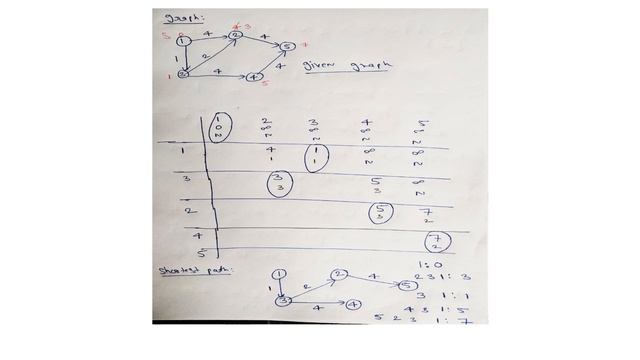 graph:
5 0 4 4 3 4
1 2 5 7
1 2 4
1 3 4 4 5
given graph
1 2 3 4 5
0 ∞ ∞ ∞ ∞
N N N N N
1 4 1 ∞ ∞
1 1 N N
3 3 5 ∞
3 3 N
2 5 7
3 2
4 7
2
5
Shortest path:
1 2 4 5
1 2
3 4 4
1:0
2 3 1: 3
3 1:1
4 3 1:5
5 2 3 1:7